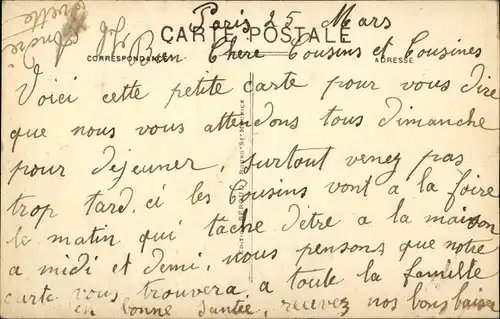 Paris 25 Mars
CARTE POSTALE
CORRESPONDANCE
ADRESSE
Bien Chere Cousins et Cousines
Voici cette petite carte pour vous dire
que nous vous attendons tous dimanche
pour dejeuner, surtout venez pas
trop tard, ci les Cousins vont a la foire
le matin qui tache d'être a la maison
a midi et demi, nous pensons que notre
carte vous trouvera a toute la famille
en bonne santée, recevez nos bons baiser